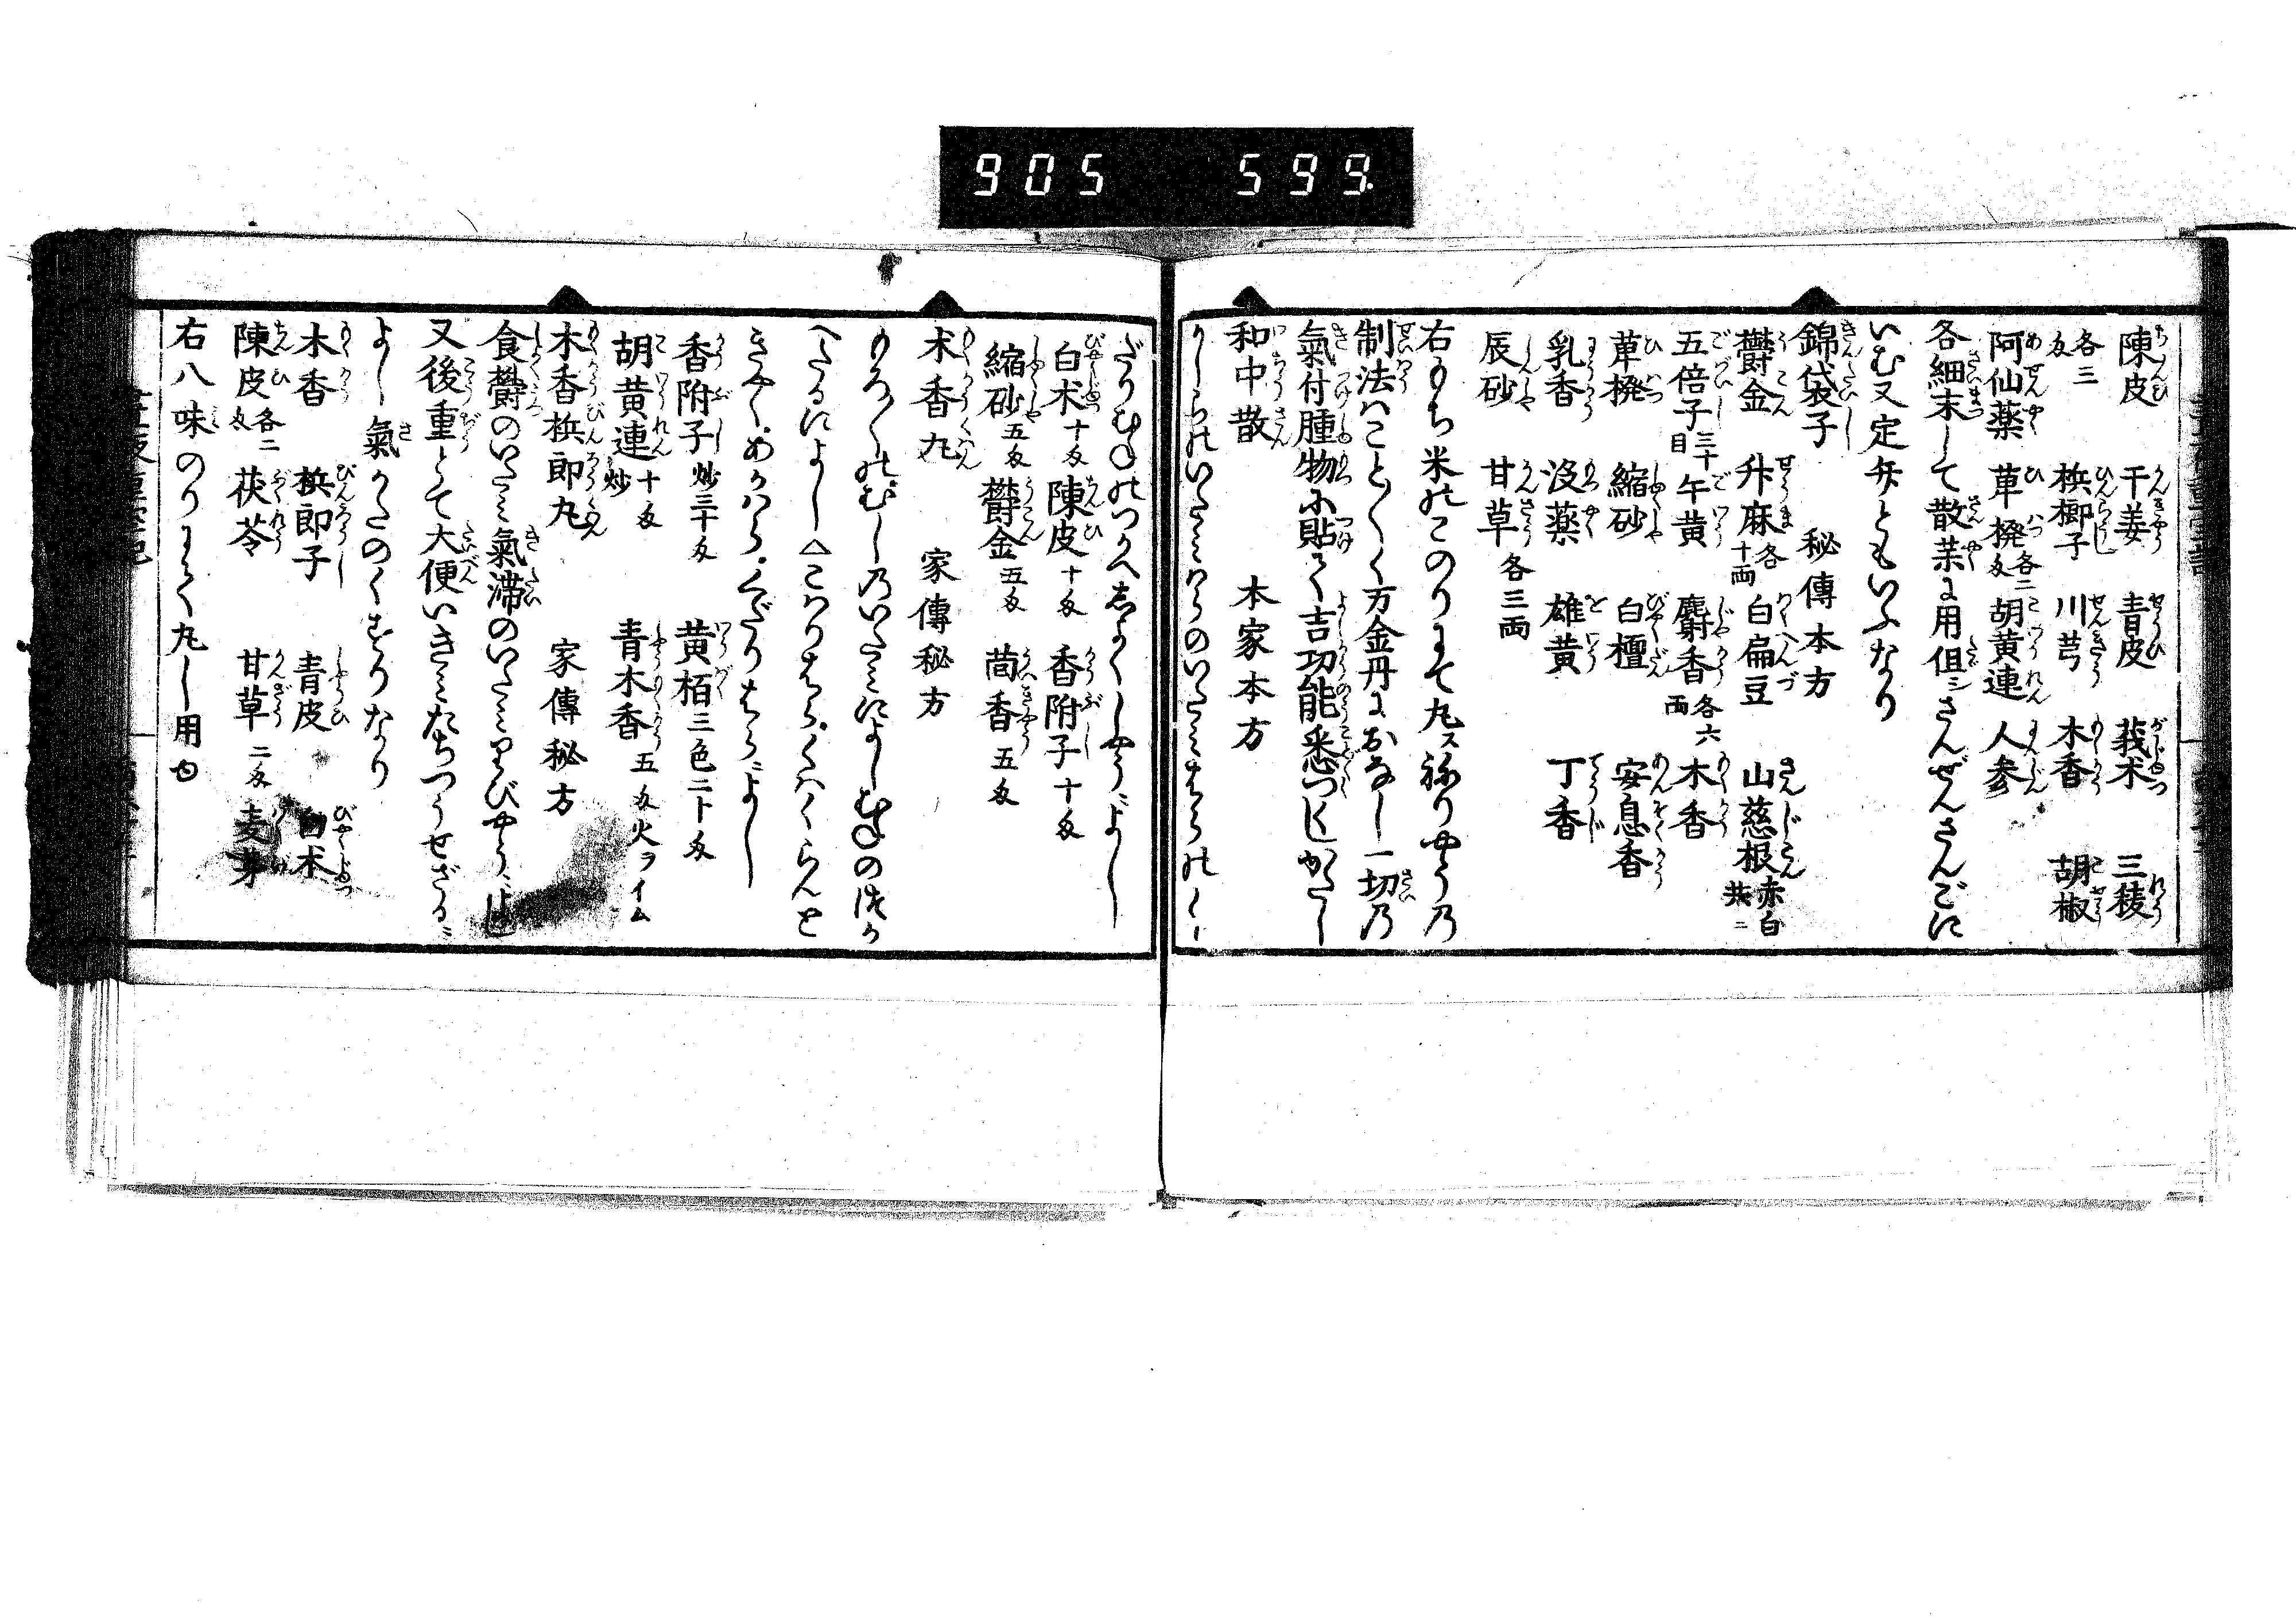 905 599
陳皮 干姜 青皮 莪朮 三稜
各三匁 梹榔子 川芎 木香 胡椒
阿仙薬 蓽撥各二匁 胡黄連 人参
各細末して散薬に用但シさんぜんさんごに
いむ又定斉ともいふなり
錦袋子 秘傳本方
欝金 升麻各十両 白扁豆 山慈根赤白共ニ
五倍子三十目 午黄 麝香各六両 木香
蓽撥 縮砂 白檀 安息香
乳香 没薬 雄黄 丁香
辰砂 甘草各三両
右もち米のこのりにて丸ス祢りやう乃
制法ハこと〳〵く万金丹におなし一切乃
氣付腫物に貼て吉功能悉つくしがたし
和中散 本家本方
かしらのいたミはらのいたミ
白朮十匁 陳皮十匁 香附子十匁
縮砂五匁 欝金五匁 茴香五匁
木香丸 家傳秘方
もろ〳〵のむしのいたミによしむねの
へたるによし△こハりはら
香附子炒三十匁 黄栢三色二十匁
胡黄連炒十匁 青木香五匁火ヲイム
木香梹郎丸 家傳秘方
食欝のいたミ氣滞のいたミりびやうによし
又後重とて大便いきミたちつうせざるに
よし氣かたのくすりなり
木香 梹郎子 青皮 白朮
陳皮各二匁 茯苓 甘草二匁 麦芽
右八味のりにて丸し用ゆ